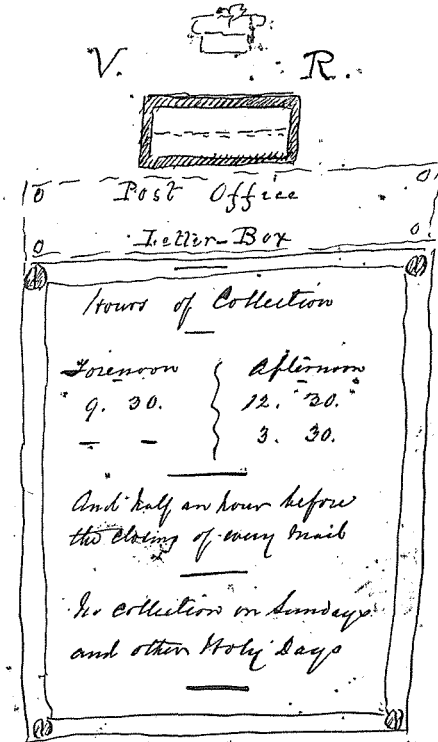 V. R.
Post Office
Letter-Box
Hours of Collection
Forenoon Afternoon
9. 30. 12. 30.
3. 30.
And half an hour before
the closing of every Mail
No collection on Sundays
and other Holy Days